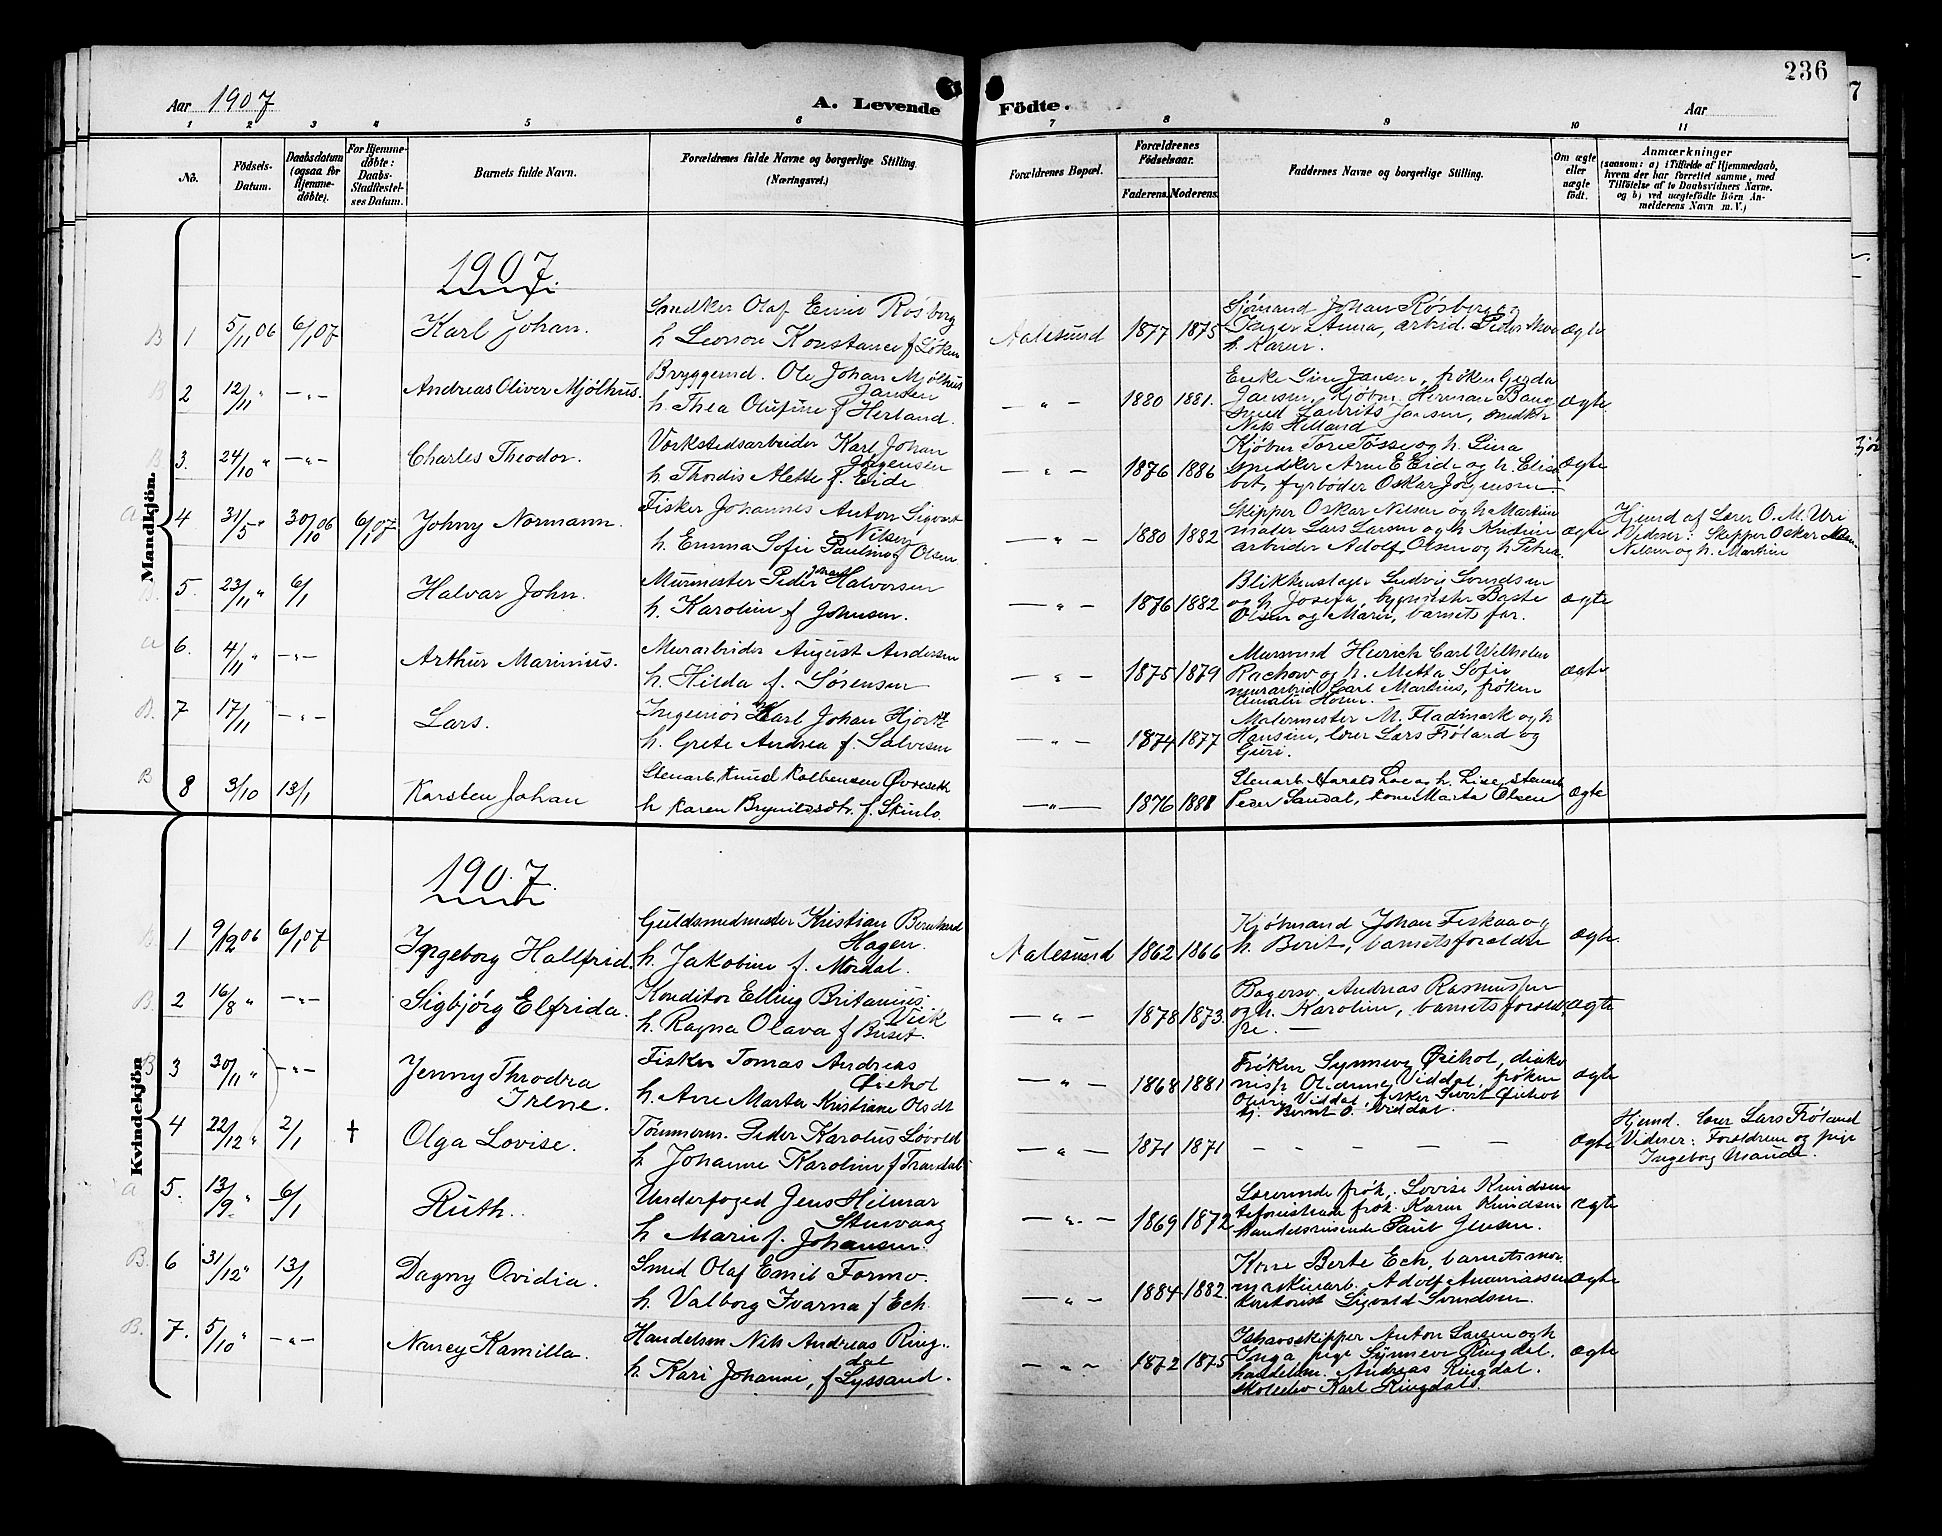 236
Aar 1907
A. Levende Födte.
Aar
1 2 3 4 5 6 7 8 9 10 11
No.
Födsels-Datum.
Daabsdatum (ogsaa for Hjemme-døbte).
For Hjemme-døbte: Daabs-Stadfestel-ses Datum.
Barnets fulde Navn.
Forældrenes fulde Navne og borgerlige Stilling.
(Næringsvei.)
Forældrenes Bopæl.
Forældrenes Fødselsaar.
Faderens. Moderens.
Faddernes Navne og borgerlige Stilling.
Om ægte eller uægte født.
Anmærkninger
(saasom: a) i Tilfælde af Hjemmedaab,
hvem der har forrettet samme, med
Tilføielse af to Daabsvidners Navne,
og b) ved uægtefødte Börn An-
melderens Navn m. V.)
Mandkjön.
1907.
B 1 5/11 06 6/1 07 Karl Johan.
Snedker Olaf Emil Rösberg
h. Leonore Konstance f Löken
Aalesund 1877 1875
Sjömand Johan Rösberg og
Inger Anna, arbeid. Peder
h. Karen.
ægte
B 2 12/11 " — " — Andreas Oliver Mjölhus.
Bryggemd. Ole Johan Mjölhus
Jansen
h. Thea Olufine f Herland.
— " — 1880 1881.
Enke Sine Jansen, fröken Gyda
Jansen, Kjöbm. Herman Bang
smed Laurits Jansen, snedker
Nils Helland
Ægte
B 3. 24/10 " — " — Charles Theodor.
Verkstedsarbeider Karl Johan
Jörgensen
h. Thordis Mette f. Eide
— " — 1876 1886
Kjöbm Tore Tösse og h. Lina
snedker Arne E Eide og h. Elisa
bet, fyrböder Oskar Jörgensen.
Ægte
a 4 31/5 " 30/10 06 6/1 07 Johny Normann.
Fisker Johannes Anton Sigvart
Nilsen
h. Emma Sofie Pauline f Olsen
— " — 1880 1882
Skipper Oskar Nilsen og h Martine
maler Lars Larsen og h Kristine
arbeider Adolf Olsen og h. Petrea
ægte
Hjemd af Lærer O. M. Uri
Vidner: Skipper Oskar
Nilsen og h. Martine
B. 5. 23/11 " 6/1 Halvar John.
Murmester Peder Halvorsen
h. Karoline f Johnsen.
— " — 1876 1882
Blikkenslager Ludvig Svendsen
og h. Josefa, bygmester Baste
Olsen og Marie, barnets far.
ægte
a 6. 4/11 " — " — Arthur Marinius.
Murarbeider August Andersen
h. Hilda f. Sørensen
— " — 1875 1879
Murmand Hinrich Carl Wilhelm
Rachow og h. Metta Sofie
murarbeid Carl Martins, fröken
Amalie Holm.
ægte
B. 7 17/11 — " — Lars.
Ingeniör Karl Johan Hjorth
h. Grete Andrea f. Salvesen
— " — 1874 1877
Malermester M. Fladmark og h
Hansine, lærer Lars Fröland og
Guri.
B 8 3/10 13/1 Karsten Johan
Stenarb. Knud Kolbensen Øvreseth
h Karen Brynildsdtr. f. Skinlo.
— " — 1876 1881
Stenarb. Harald Loe og h. Lise, stenarb
Peder Sandal, kone Marta Olsen
Ægte
Kvindekjön
1907.
B 1 9/12 06 6/1 07 Ingeborg Hallfrid.
Guldsmedmester Kristian Bernhard
Hagen.
h. Jakobine f. Mordal.
Aalesund 1862 1866
Kjöbmand Johan Fiskaa og
h. Berit, barnets forældre
Ægte.
B. 2 16/8 " — " — Sigbjörg Elfrida.
Konditor Elling Britanius
Viik
h. Ragna Olava f Buset.
— " — 1878 1873.
Bagersv. Andreas Rasmussen
og h. Karoline, barnets foræld
re. —
ægte
B 3 30/11 " — " — Jenny Throdra
Irene.
Fisker Tomas Andreas
Øiehol
h. Ane Marta Kristiane Olsdt
— " — 1868 1881
Fröken Synneve Øiehol, diako
nisse Oldarine Viddal, fröken
Oline Viddal, fisker Sivert Øiehol
Kj. Bernt O. Viddal.
ægte
4 22/12 " 2/1 † Olga Lovise.
Tömmerm. Peder Karolus Lövold
h. Johanne Karoline f Trandal
— " — 1871 1871
— — — — —
ægte
Hjemd. lærer Lars Fröland
Vidner: Forældrene og pige
Ingeborg Mande.
a 5. 13/9 " 6/1 Ruth.
Underfoged Jens Hilmar
Stenvaag
h Marie f. Johansen.
— " — 1869 1872
Lærerinde frök. Lovise Knudsen
telefonistinde frök. Karen Knudsen
handelsreisende Paul Jensen.
ægte
B. 6 31/12 " 13/1 Dagny Ovidia.
Smed Olaf Emil Formo.
h. Valborg Ivarna f Ech.
— " — 1884 1882.
Kone Berte Ech, barnets mor
maskinarb. Adolf Ananiassen
kontorist Sigvald Svendsen.
Ægte
B. 7. 5/10 " — " — Nancy Kamilla.
Handelsm Nils Andreas Ring-
dal
h. Kari Johanne, f Lyssand.
— " — 1872 1875
Ishavsskipper Anton Larsen og h
Inga pige Synneve Ringdal,
handelsm. Andreas Ringdal
skoleelev Karl Ringdal.
ægte